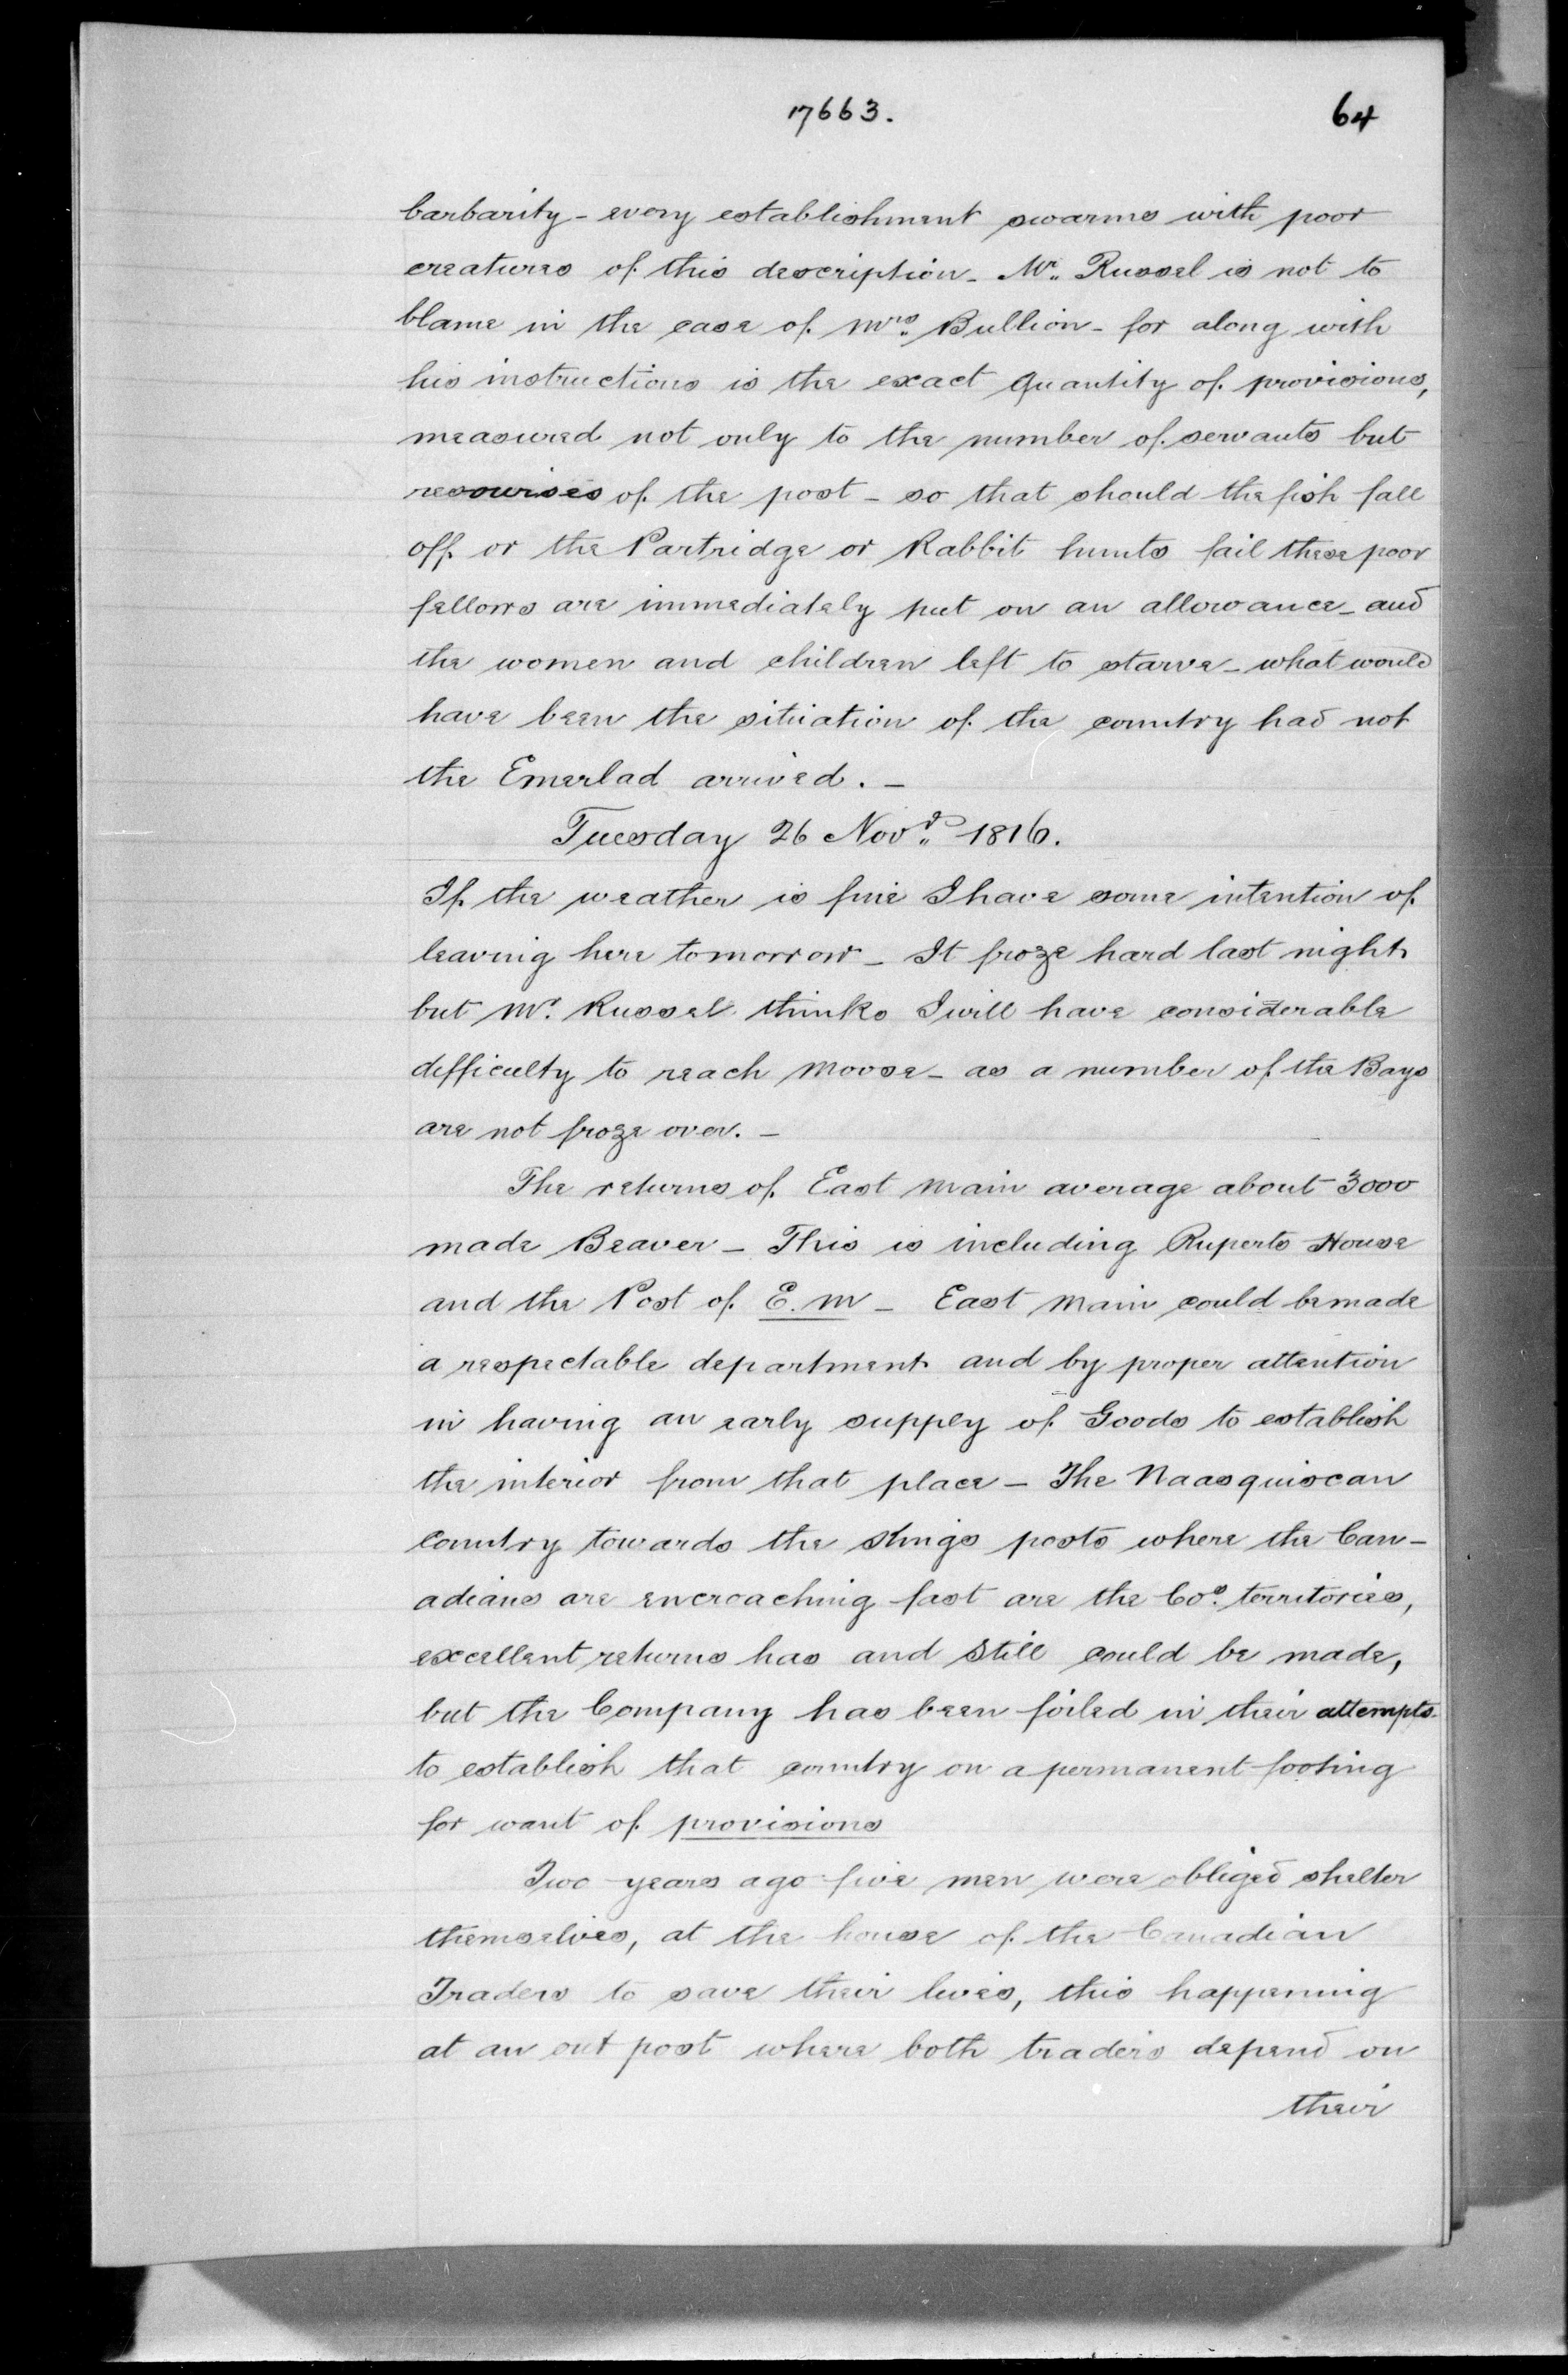 17663.
64
barbarity - every establishment swarms with poor
creatures of this description - Mr. Russel is not to
blame in the case of Mrs. Bullion - for along with
his instructions is the exact quantity of provisions,
measured not only to the number of servants but
resourises of the post - so that should the fish fall
off or the Partridge or Rabbit hunts fail these poor
fellows are immediately put on an allowance - and
the women and children left to starve - what would
have been the situation of the country had not
the Emerlad arrived. -
Tuesday 26 Novr. 1816.
If the weather is fine I have some intention of
leaving here tomorrow - It froze hard last night
but Mr. Russel thinks I will have considerable
difficulty to reach Moose - as a number of the Bays
are not froze over. -
The returns of East Main average about 3000
made Beaver - This is including Ruperts House
and the Post of E. M - East Main could be made
a respectable department and by proper attention
in having an early supply of Goods to establish
the interior from that place - The Naasquiscan
Country towards the Kings posts where the Can-
adians are encroaching fast are the Cos. territories,
excellent returns has and still could be made,
but the Company has been foiled in their attempts
to establish that country on a permanent footing
for want of provisions
Two years ago five men were obliged shelter
themselves, at the house of the Canadian
Traders to save their lives, this happening
at an out post where both traders depend on
their